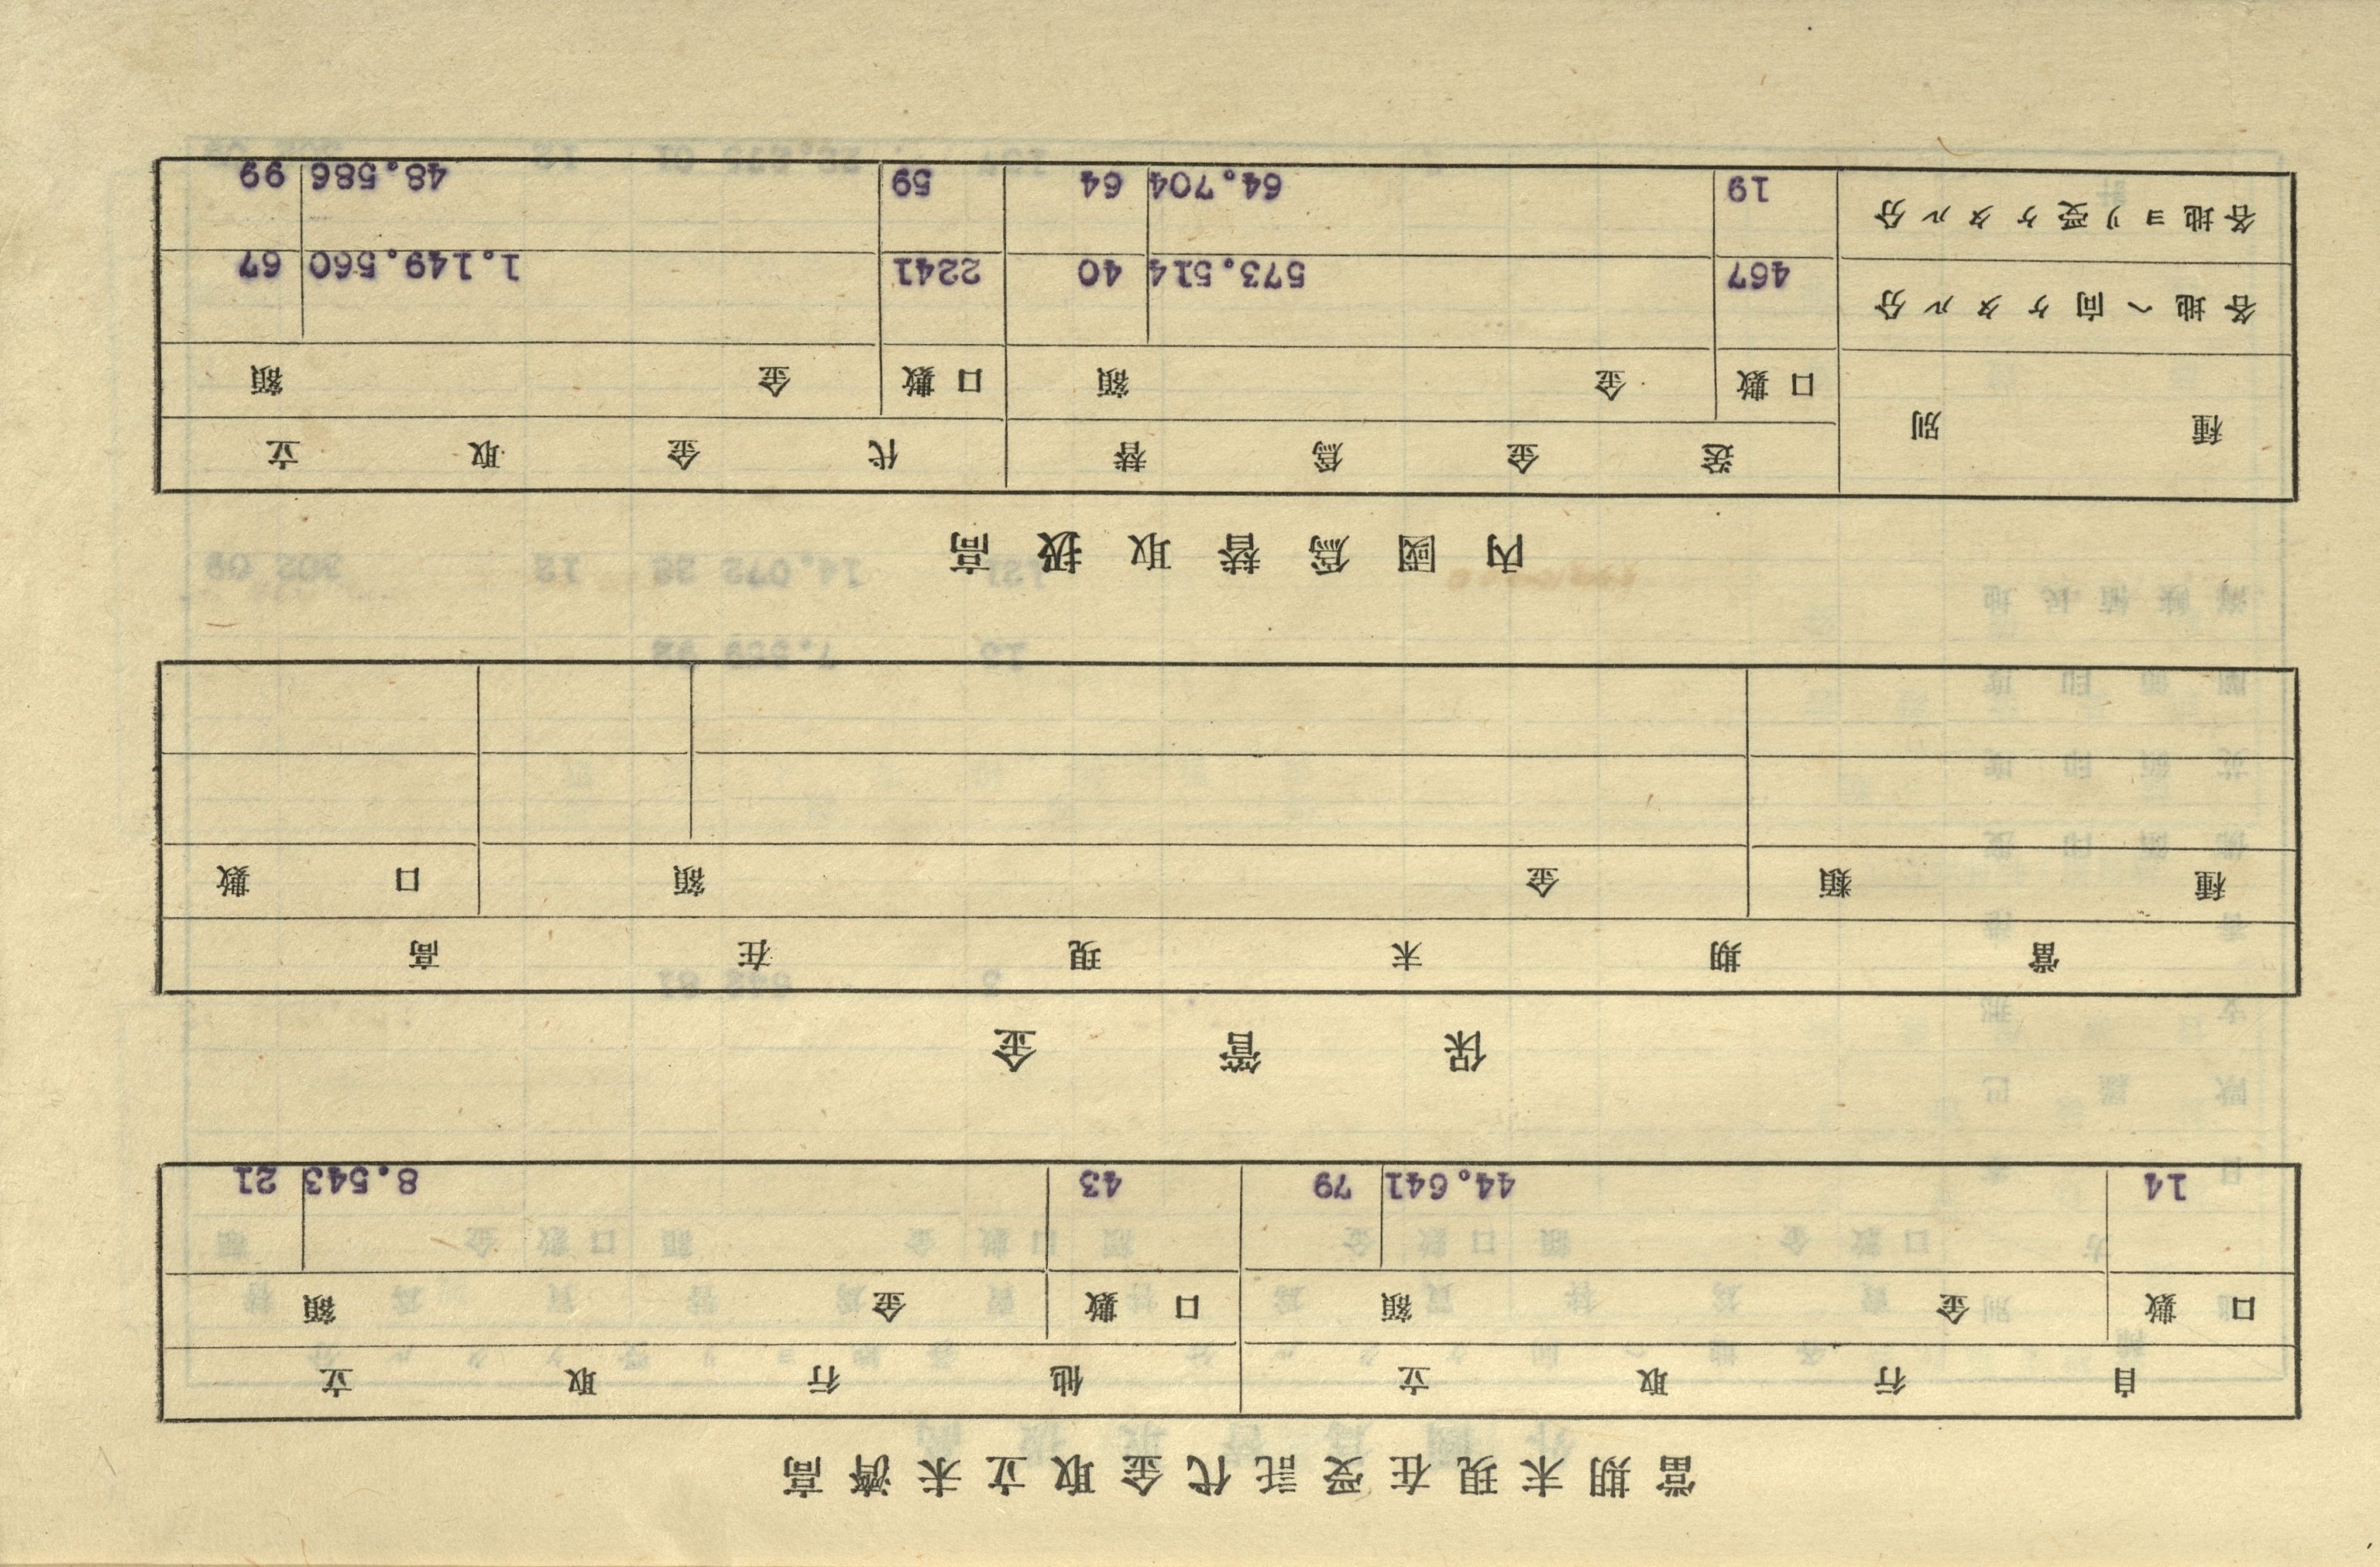 當期末現在受託代金取立未濟高
自行取立 他行取立
口數 金額 口數 金額
14 44.641 79 43 8.543 21
保管金
當期末現在高
種類 金額 口數
內國爲替取扱高
種別 送金爲替 代金取立
口數 金額 口數 金額
各地ヘ向ケタル分 467 573.514 40 2241 1.149.560 67
各地ヨリ受ケタル分 19 64.704 64 59 48.586 99